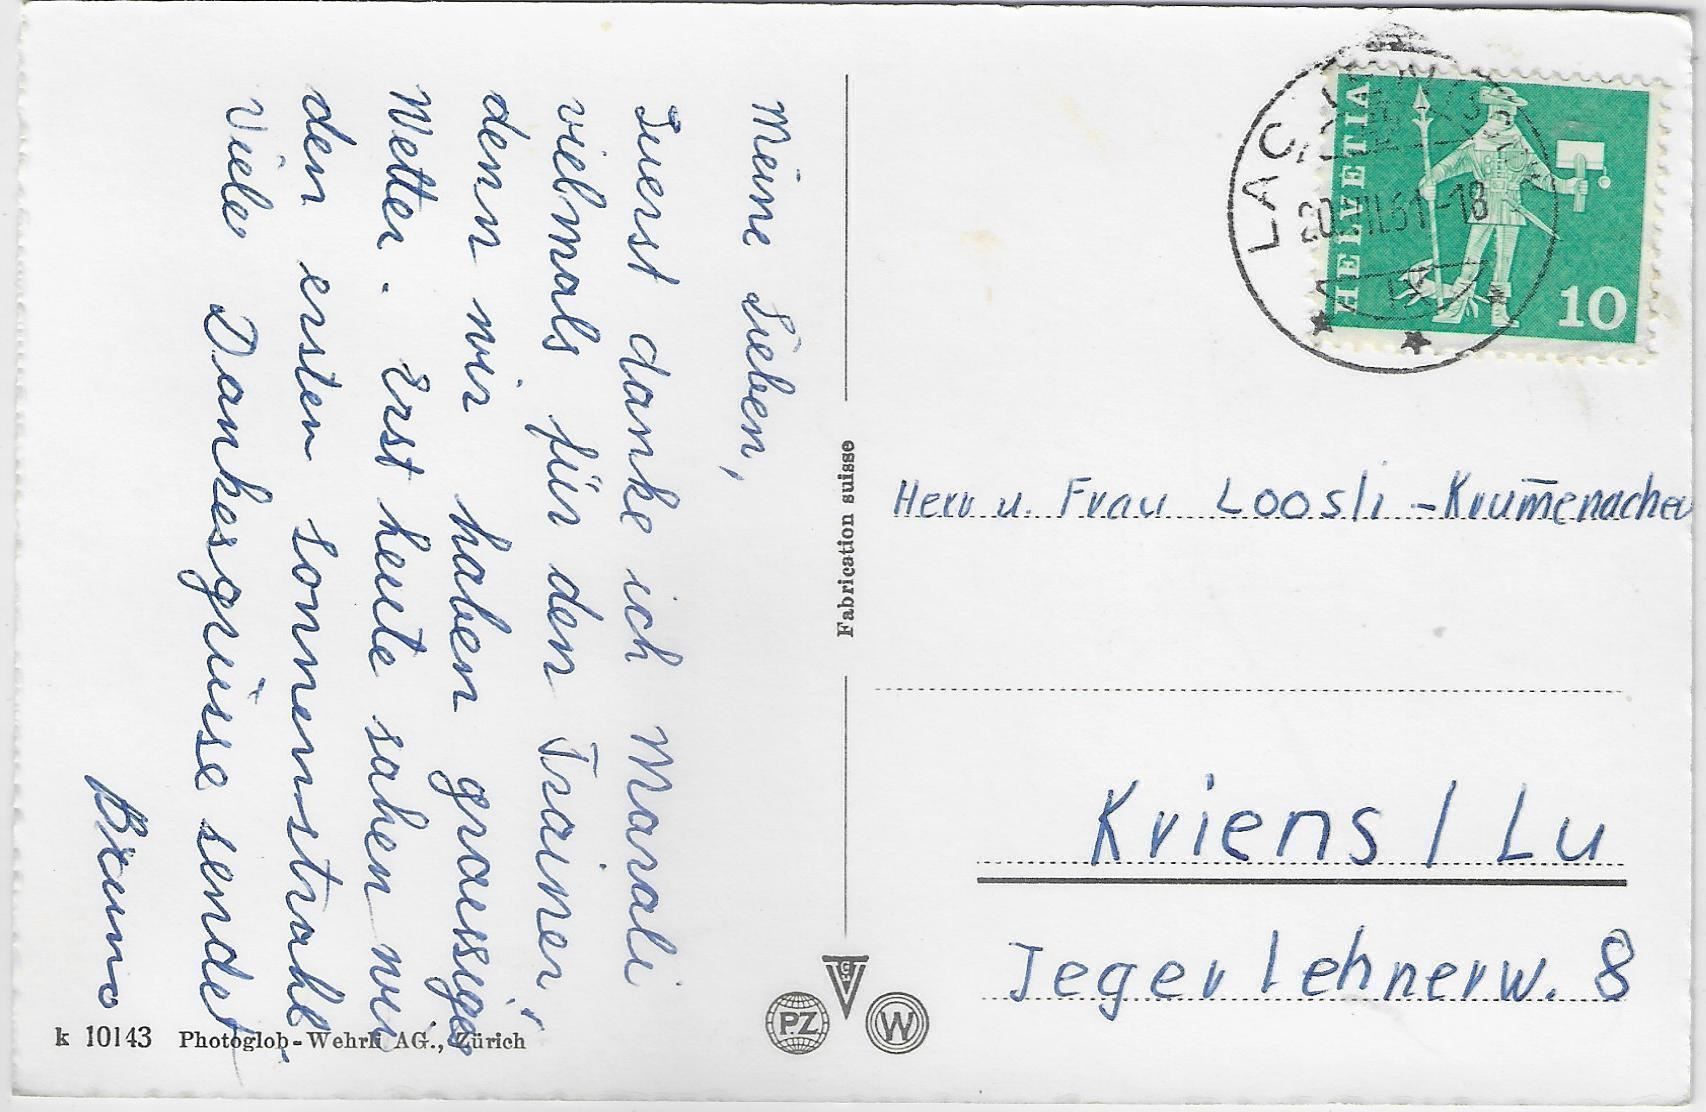 Meine Lieben,
Zuerst danke ich Marali
vielmals für den Trainer,
denn wir haben graussiges
Wetter. Erst heute sahen wir
den ersten Sonnenstrahl.
Viele Dankesgrüsse sendet
Bruno
k 10143 Photoglob-Wehrli AG., Zürich
Fabrication suisse
PZ
W
HELVETIA
10
LAC
20. II.61-18
Herr u. Frau Loosli-Krum̄enacher
Kriens / Lu
Jegerlehnerw. 8